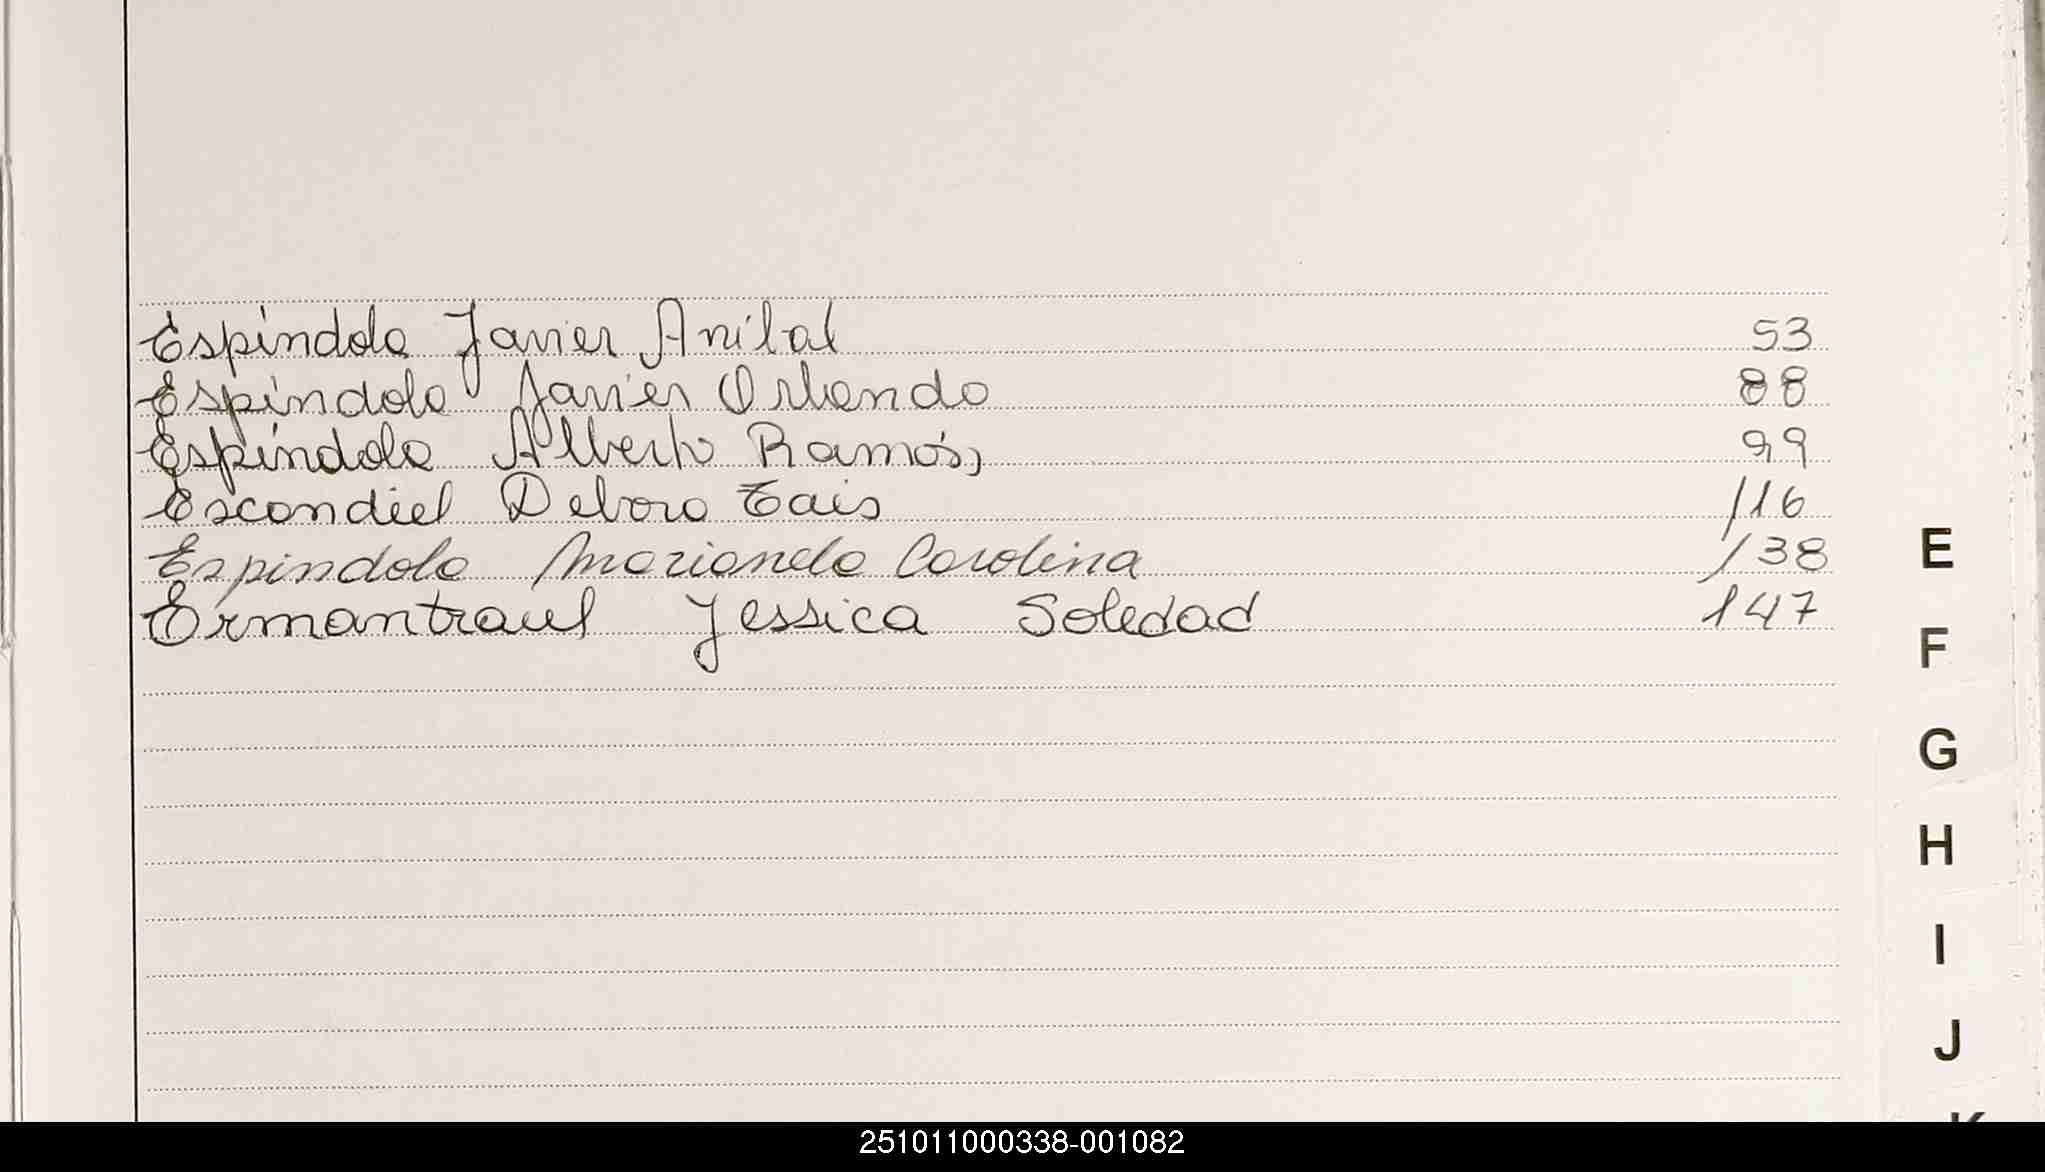 Espíndola Javier Anibal 53
Espíndola Javier Orlando 88
Espíndola Alberto Ramón, 99
Escondiel Debora Tais 116
Espindola Marianela Carolina 138
Ermantraut Jessica Soledad 147
E
F
G
H
I
J
251011000338-001082